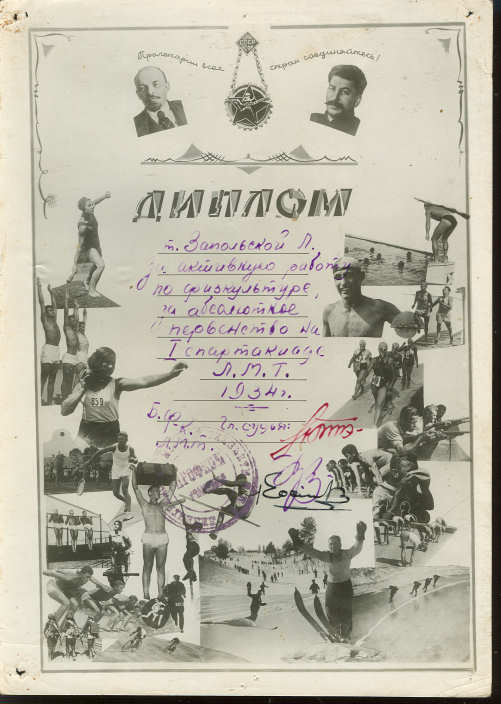 Пролетарии всех стран соединяйтесь!
СССР
ДИПЛОМ
т. Запольской Л.
за активную работу
по физкультуре,
за абсолютное
первенство на
I спартакиаде
Л.М.Т.
1934 г.
Б.Ф.К. Гл. судья:
Л.М.Т.
859